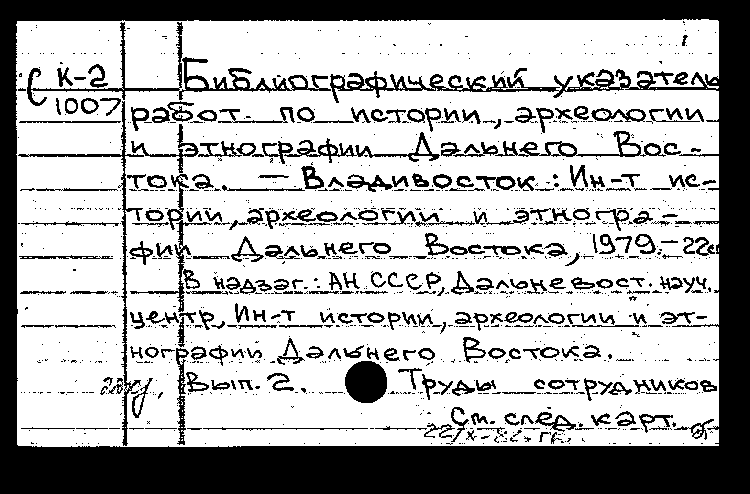 1
С К-2 Библиографический указатель
1007 работ по истории, археологии
и этнографии Дальнего Вос-
тока. — Владивосток : Ин-т ис-
тории, археологии и этногра-
фии Дальнего Востока, 1979. - 22см
В надзаг.: АН СССР, Дальневост. науч.
центр, Ин-т истории, археологии и эт-
нографии Дальнего Востока.
Вып. 2. Труды сотрудников
См. след. карт.